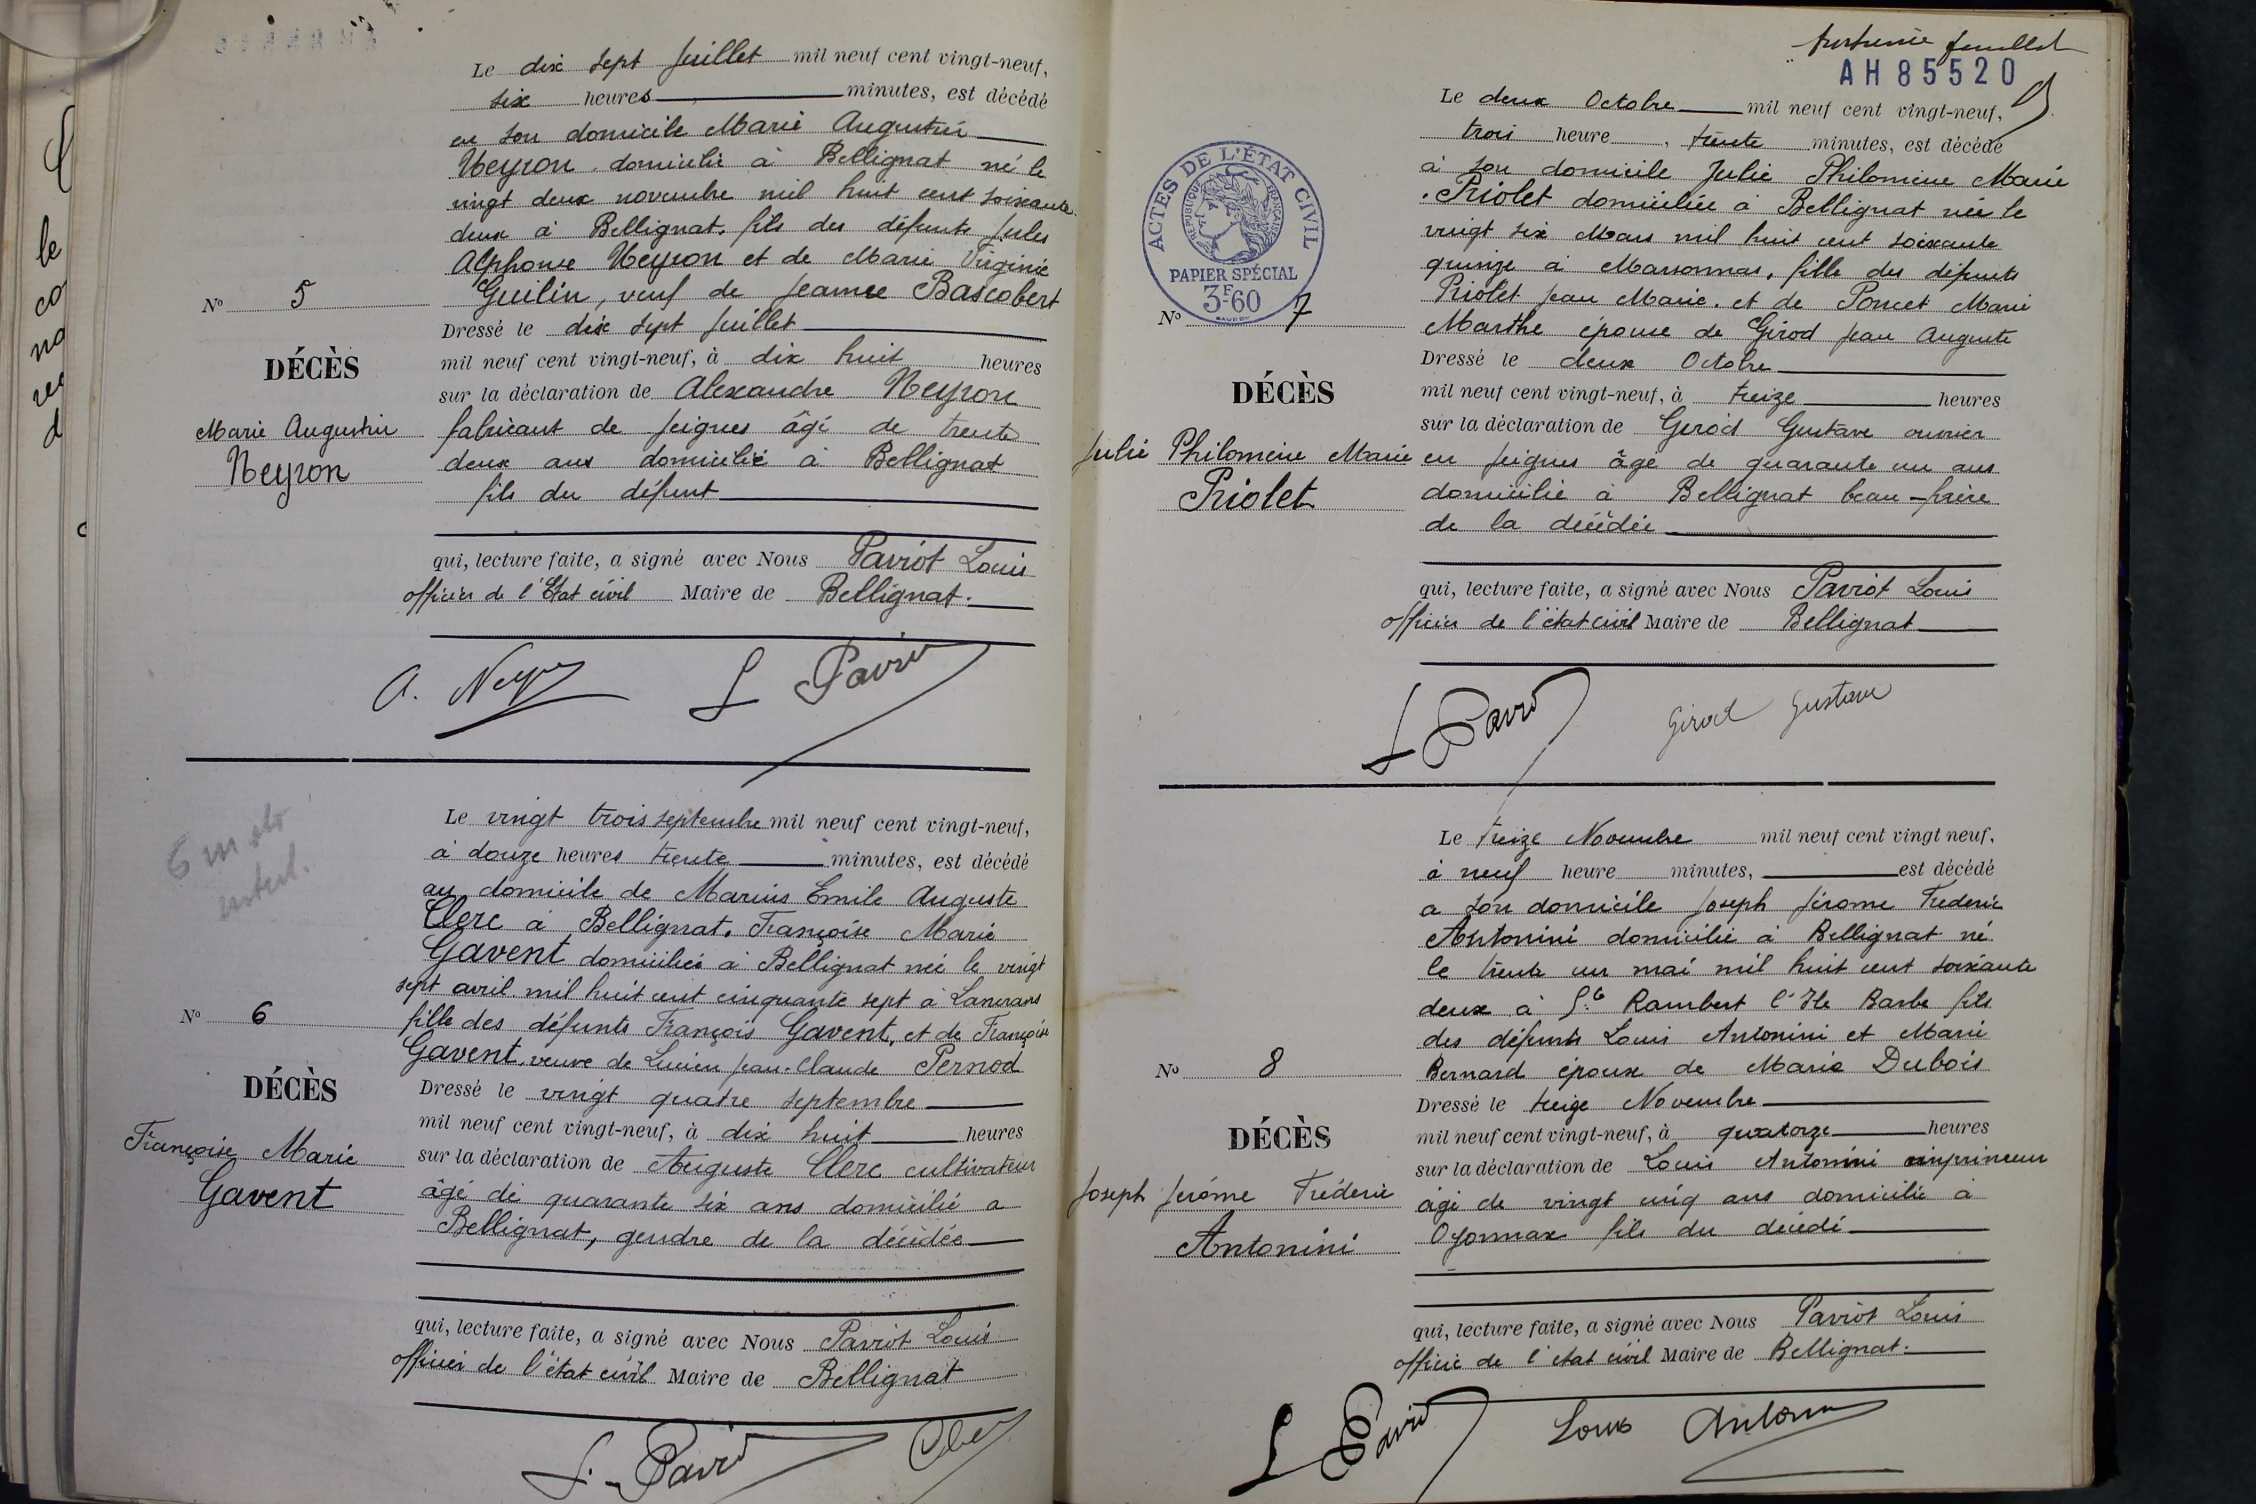 Le dix sept Juillet mil neuf cent vingt-neuf,
six heures minutes, est décédé
en son domicile Marie Augustin
Neyron domicilié à Bellignat né le
vingt deux novembre mil huit cent soixante
deux à Bellignat, fils des défunts Jules
Alphonse Neyron et de Marie Virginie
Guilin, veuf de Jeanne Bascobert
Nº 5
Dressé le dix sept Juillet
DÉCÈS
mil neuf cent vingt-neuf, à dix huit heures
sur la déclaration de Alexandre Neyron
Marie Augustin
Neyron
fabricant de peignes âgé de trente
deux ans domicilié à Bellignat
fils du défunt
qui, lecture faite, a signé avec Nous Paviot Louis
officier de l'Etat civil Maire de Bellignat.
A. Neyron L Paviot
Le vingt trois septembre mil neuf cent vingt-neuf,
à douze heures trente minutes, est décédé
au domicile de Marius Emile Auguste
Clerc à Bellignat, Françoise Marie
Gavent domiciliée à Bellignat née le vingt
sept avril mil huit cent cinquante sept à Lancrans
Nº 6
fille des défunts François Gavent, et de Françoise
Gavent, veuve de Lucien Jean-Claude Pernod
DÉCÈS
Dressé le vingt quatre septembre
mil neuf cent vingt-neuf, à dix huit heures
Françoise Marie
Gavent
sur la déclaration de Auguste Clerc cultivateur
âgé de quarante six ans domicilié a
Bellignat, gendre de la décédée
qui, lecture faite, a signé avec Nous Paviot Louis
officier de l'état civil Maire de Bellignat
L. Paviot Clerc
feuillet
AH85520
Le deux Octobre mil neuf cent vingt-neuf,
trois heure, trente minutes, est décédé
à son domicile Julie Philomène Marie
Priolet domiciliée à Bellignat née le
vingt six Mars mil huit cent soixante
quinze à Marsonnas, fille des défunts
Priolet Jean Marie. et de Poncet Marie
Marthe épouse de Girod Jean Auguste
ACTES DE L'ÉTAT CIVIL
RÉPUBLIQUE FRANÇAISE
PAPIER SPÉCIAL
3F60
Nº 7
Dressé le deux Octobre
DÉCÈS
mil neuf cent vingt-neuf, à treize heures
sur la déclaration de Girod Gustave ouvrier
Julie Philomène Marie
Priolet
en peignes âgé de quarante un ans
domicilié à Bellignat beau-frère
de la décédée
qui, lecture faite, a signé avec Nous Paviot Louis
officier de l'état civil Maire de Bellignat
L Paviot Girod Gustave
Le treize Novembre mil neuf cent vingt neuf,
à neuf heure minutes, est décédé
a son domicile Joseph Jérome Frederic
Antonini domicilié à Bellignat né
le trente un mai mil huit cent soixante
deux à St Rambert l'Ile Barbe fils
des défunts Louis Antonini et Marie
Bernard époux de Marie Dubois
Nº 8
Dressé le treize Novembre
DÉCÈS
mil neuf cent vingt-neuf, à quatorze heures
sur la déclaration de Louis Antonini imprimeur
Joseph Jerôme Fréderic
Antonini
âgé de vingt cinq ans domicilié à
Oyonnax fils du décédé
qui, lecture faite, a signé avec Nous Paviot Louis
officie de l'etat civil Maire de Bellignat.
L Paviot Louis Antonini